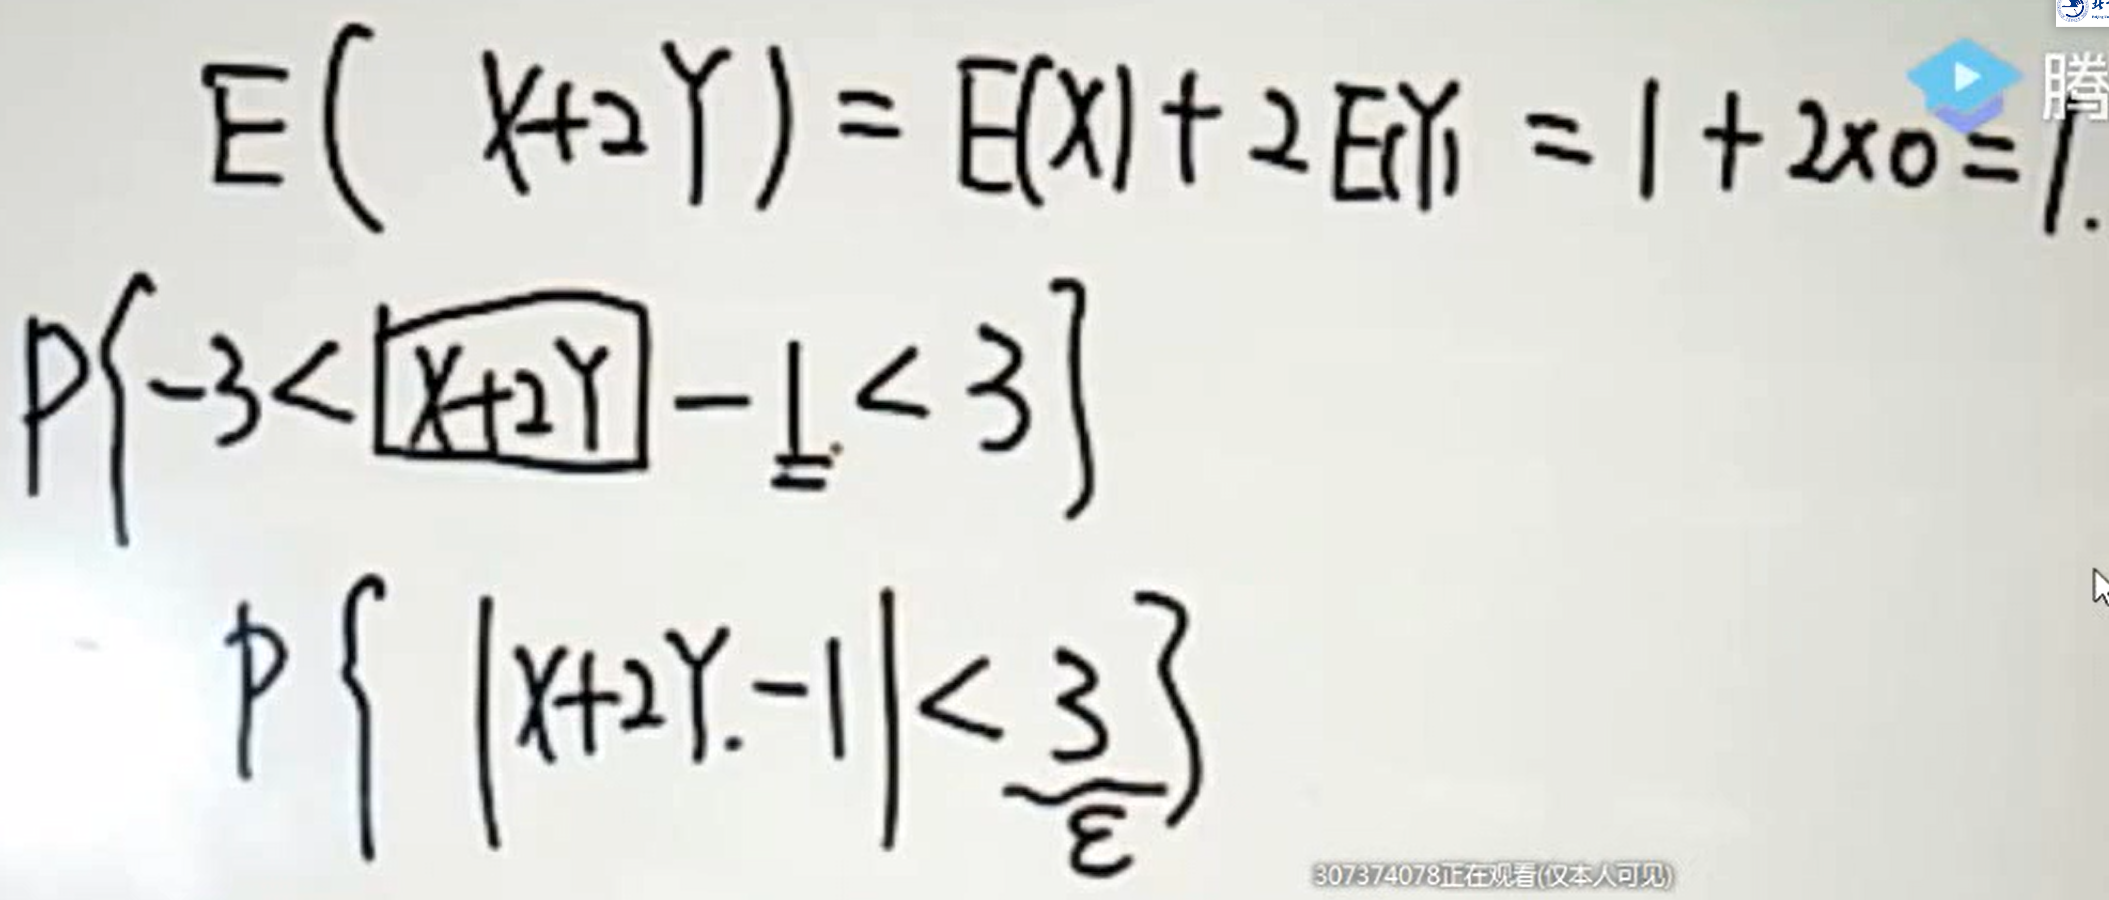 E( X+2Y) = E(X)+2E(Y) = 1+2×0=1.
腾
P{-3<X+2Y-1<3}
P{|X+2Y.-1|<3}
ε
307374078正在观看(仅本人可见)